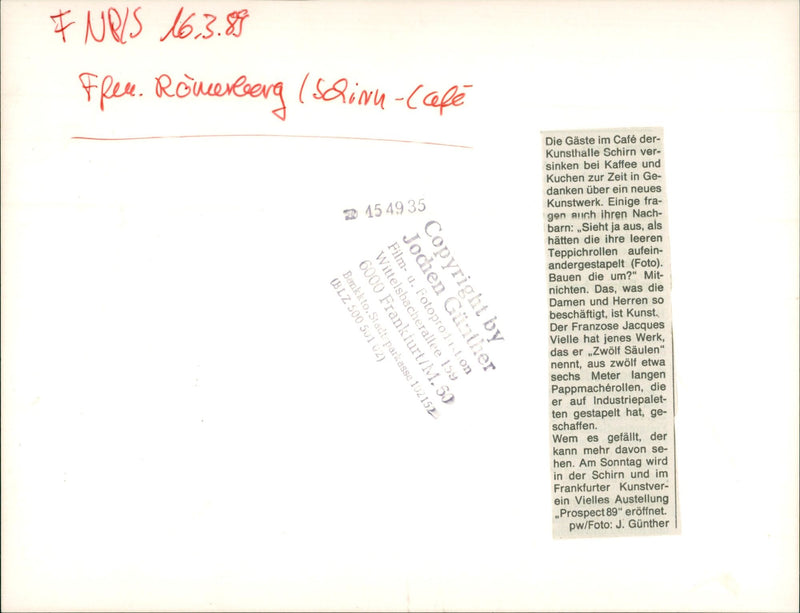 F NP/S 16.3.89
Ffm. Römerberg (Schirn-Café
☎ 15 49 35
Copyright by
Jochen Günther
Film- u. Fotoproduktion
Wittelsbacherallee 159
6000 Frankfurt/M. 60
Bankkto. Stadtsparkasse
(BLZ 500 501 02)
Die Gäste im Café der-
Kunsthalle Schirn ver-
sinken bei Kaffee und
Kuchen zur Zeit in Ge-
danken über ein neues
Kunstwerk. Einige fra-
gen auch ihren Nach-
barn: „Sieht ja aus, als
hätten die ihre leeren
Teppichrollen aufein-
andergestapelt (Foto).
Bauen die um?“ Mit-
nichten. Das, was die
Damen und Herren so
beschäftigt, ist Kunst.
Der Franzose Jacques
Vielle hat jenes Werk,
das er „Zwölf Säulen“
nennt, aus zwölf etwa
sechs Meter langen
Pappmachérollen, die
er auf Industriepalet-
ten gestapelt hat, ge-
schaffen.
Wem es gefällt, der
kann mehr davon se-
hen. Am Sonntag wird
in der Schirn und im
Frankfurter Kunstver-
ein Vielles Austellung
„Prospect 89“ eröffnet.
pw/Foto: J. Günther